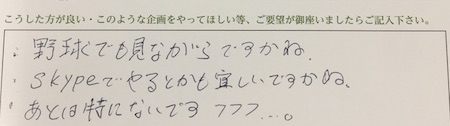 こうした方が良い・このような企画をやってほしい等、ご要望が御座いましたらご記入下さい。
野球でも見ながらですかね.
skypeでやるとかも宜しいですかね.
あとは特にないです フフフ…。